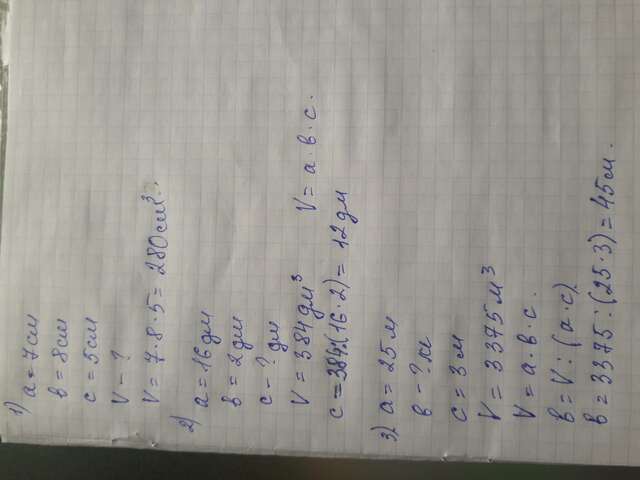 1) a=7см
в=8см
с=5см
V-?
V=7·8·5=280см³.
2) a=16дм
в=2дм
с-? дм
V=384дм³ V=a·в·с.
с=384:(16·2)=12дм
3) a=25м
в-?м
с=3м
V=3375м³
V=a·в·с.
в=V:(a·с)
в=3375:(25·3)=45м.